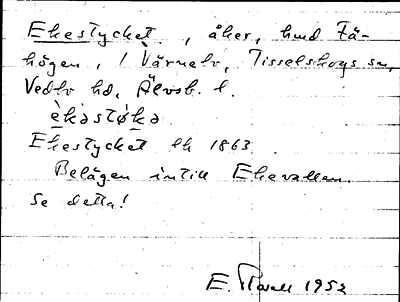 Ekestycket, åker, hmd Få-
högen, 1 Värnebo, Tisselskogs sn,
Vedbo hd, Älvsb. l.
è̱kəstø̱kə
Ekestycket lk 1863
Belägen intill Ekevallen.
Se detta!
E. 1952